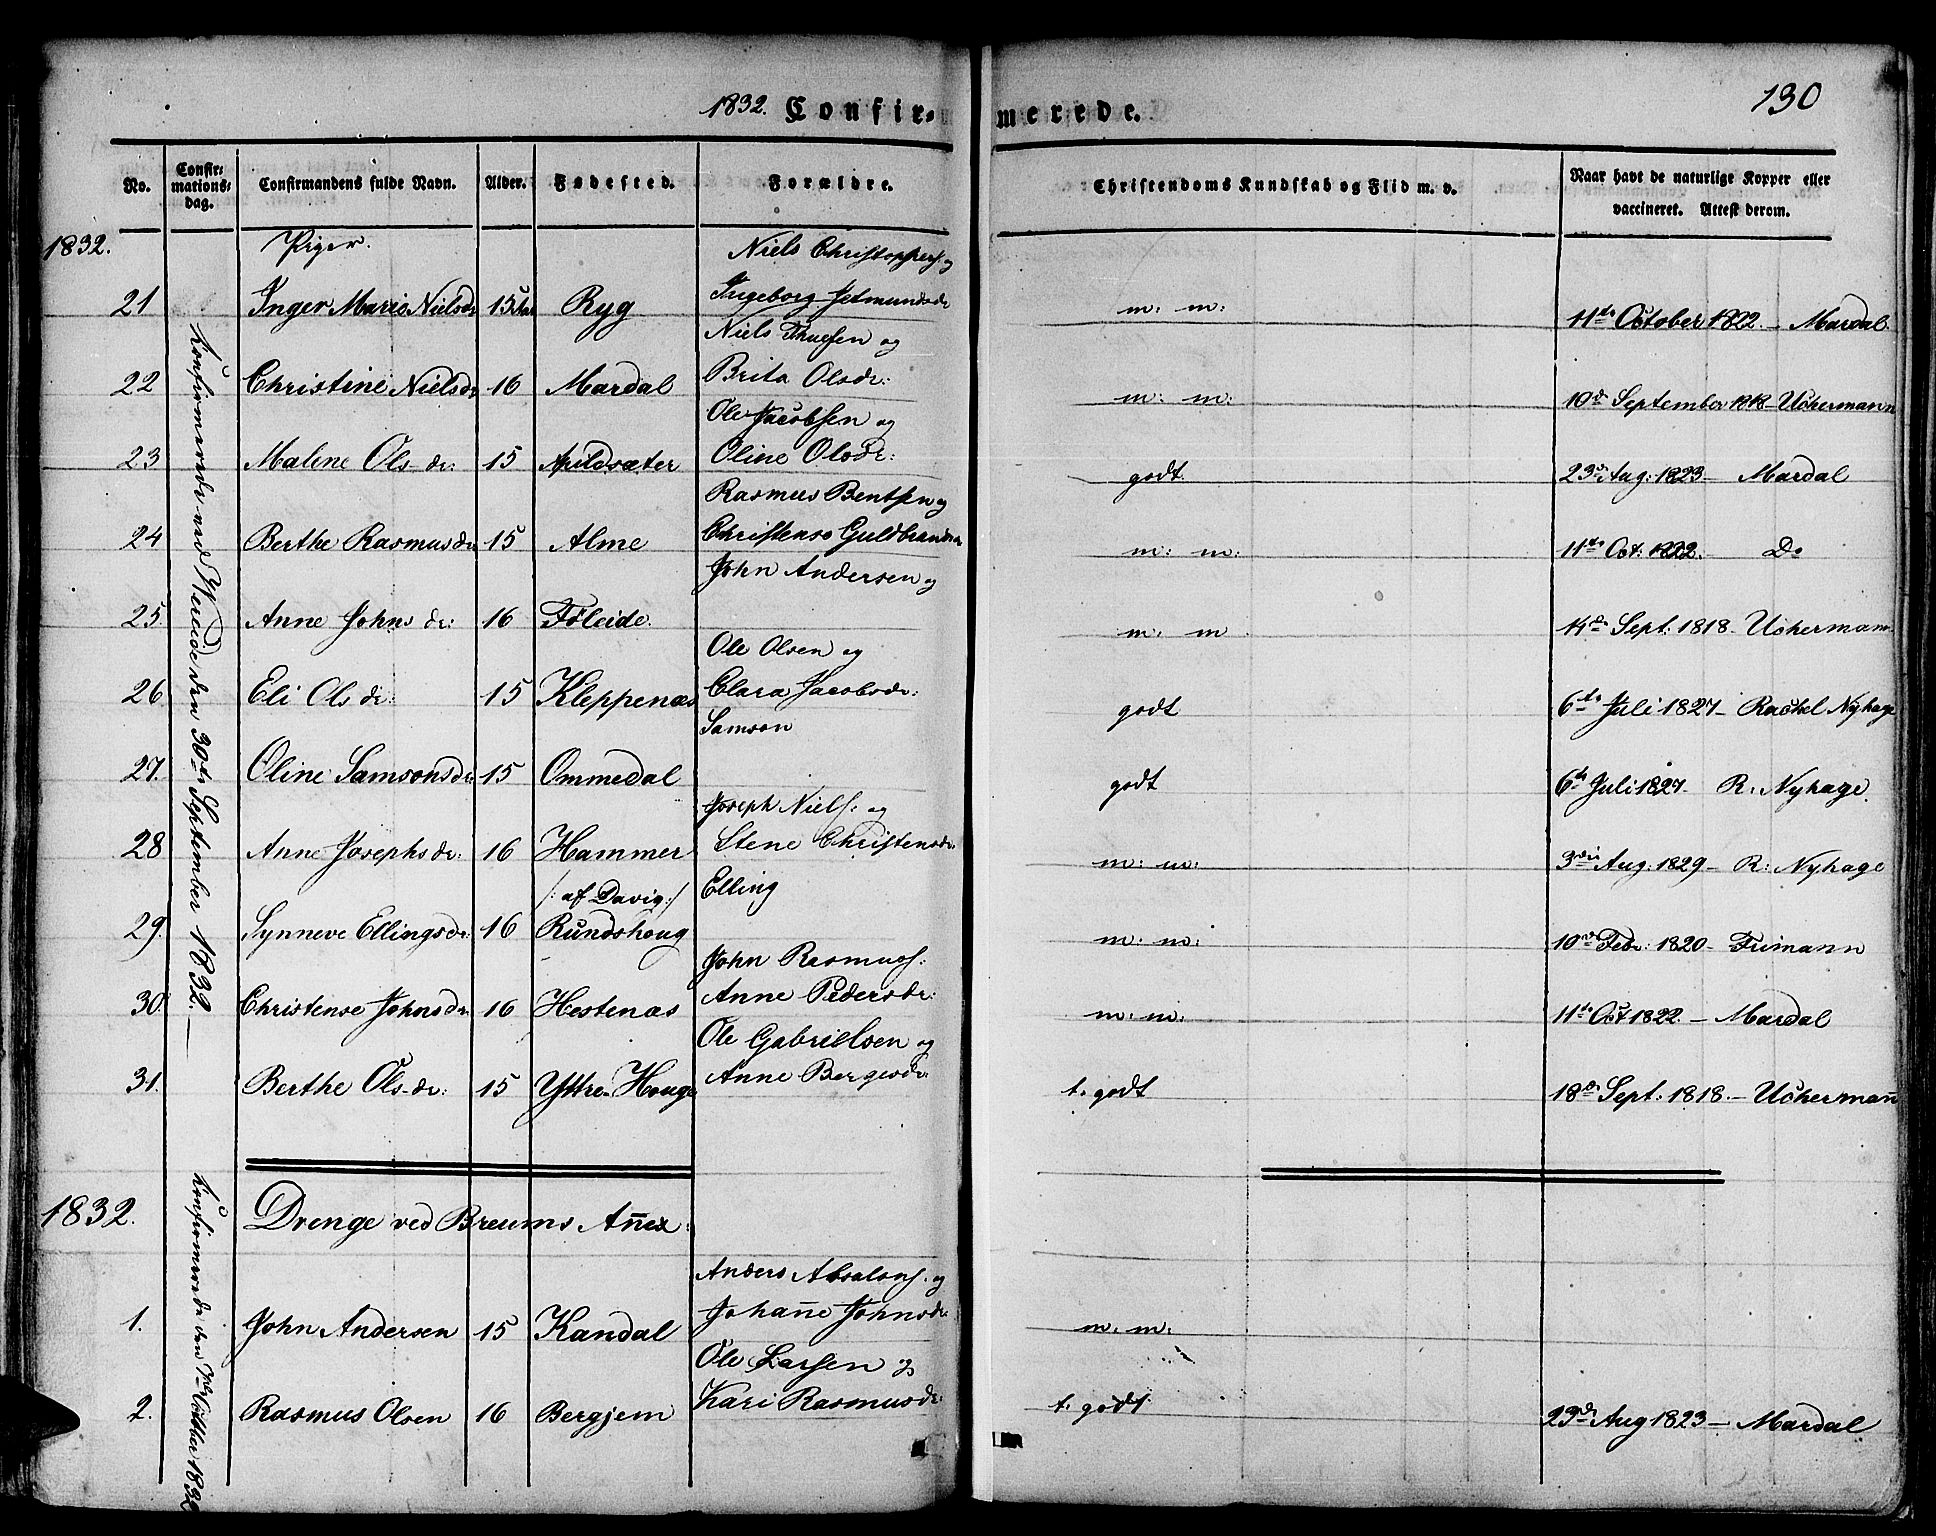 1832. Confir- merede. 130
No. Confir-mations-dag. Confirmandens fulde Navn. Alder. Fødested. Forældre. Christendoms Kundskab og Flid m. v. Naar havt de naturlige Kopper eller vaccineret. Attest derom.
1832. Piger.
Konfirmerede ved Wereide den 30te September 1832.
Niels Christophers. og
21 Inger Marie Nielsdr 15 Ryg Ingeborg Jetmundsdr m: m: 11te October 1822. - Mardal.
Niels Thuesen og
22 Christine Nielsdr 16 Mardal Brita Olsdr: m: m: 10de September 1818 - Uchermann
Ole Jacobsen og
23 Malene Ols-dr: 15 Apildsæter Oline Olsdr: godt. 23de Aug: 1823 - Mardal
Rasmus Bentsen og
24 Berthe Rasmusdr 15 Alme Christense Guldbrandsdr m: m: 11te Oct: 1822. Do
John Andersen og
25 Anne Johns dr: 16 Føleide. m: m 14de Sept: 1818 - Uchermann
Ole Olsen og
26 Eli Ols dr: 15 Kleppenæs Clara Jacobsdr: godt 6te Juli 1827 - Rachel Nyhage
Samson
27. Oline Samsonsdr 15 Ommedal godt 6te Juli 1827 - R: Nyhage.
Joseph Niels: og
28 Anne Josephsdr: 16 Hammer Stene Christensdr m: m: 3die Aug: 1829 - R: Nyhage
/: af Davig :/ Elling
29. Synneve Ellingsdr: 16 Rundshoug m: m: 10de Febr: 1820 - Frimann
John Rasmus:
30. Christense Johnsdr 16 Hestenæs Anne Pedersdr: m: m: 11te Oct 1822 - Mardal
Ole Gabrielsen og
31. Berthe Ols-dr: 15 Yttre-Houge Anne Bergesdr: t. godt 18de Sept. 1818. - Uchermañ
1832. Drenge ved Breums Añex.
Konfirmerede den 7de Octbr 1832
Anders Absalons. og
1. John Andersen 15 Kandal Johañe Johnsdr m. m:
Ole Larsen og
2. Rasmus Olsen 16 Bergjem Kari Rasmusdr: t. godt 23de Aug 1823 - Mardal